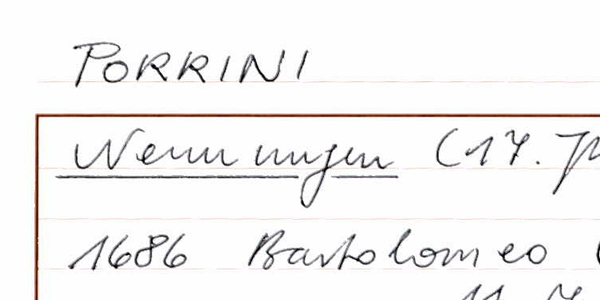 PORRINI
Nennungen (17.
1686 Bartolomeo (